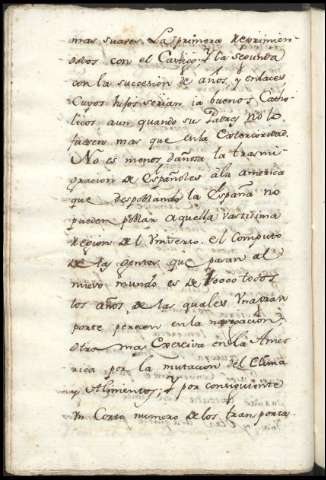 mas suaves. La primera reprimien-
dolos con el Castigo, y la segunda
con la succesion de años, y enlaces
Cuyos hijos serian ia buenos Catho-
licos aun quando sus Padres no lo
fuesen mas que en la Exterioridad.
No es menos dañosa la trasmi-
gracion de Españoles ala america
que despoblando la España no
pueden poblar aquella vastisima
Region del Vniverso. el Computo
de las gentes que pasan al
nuevo mundo es de 10000 todos
los años, de las quales vna gran
parte perecen en la navegacion
otra mas Excesiva en la Ame-
rica por la mutacion del Clima
y Alimentos, y por consiguiente
Vn Corto numero de los transporta-